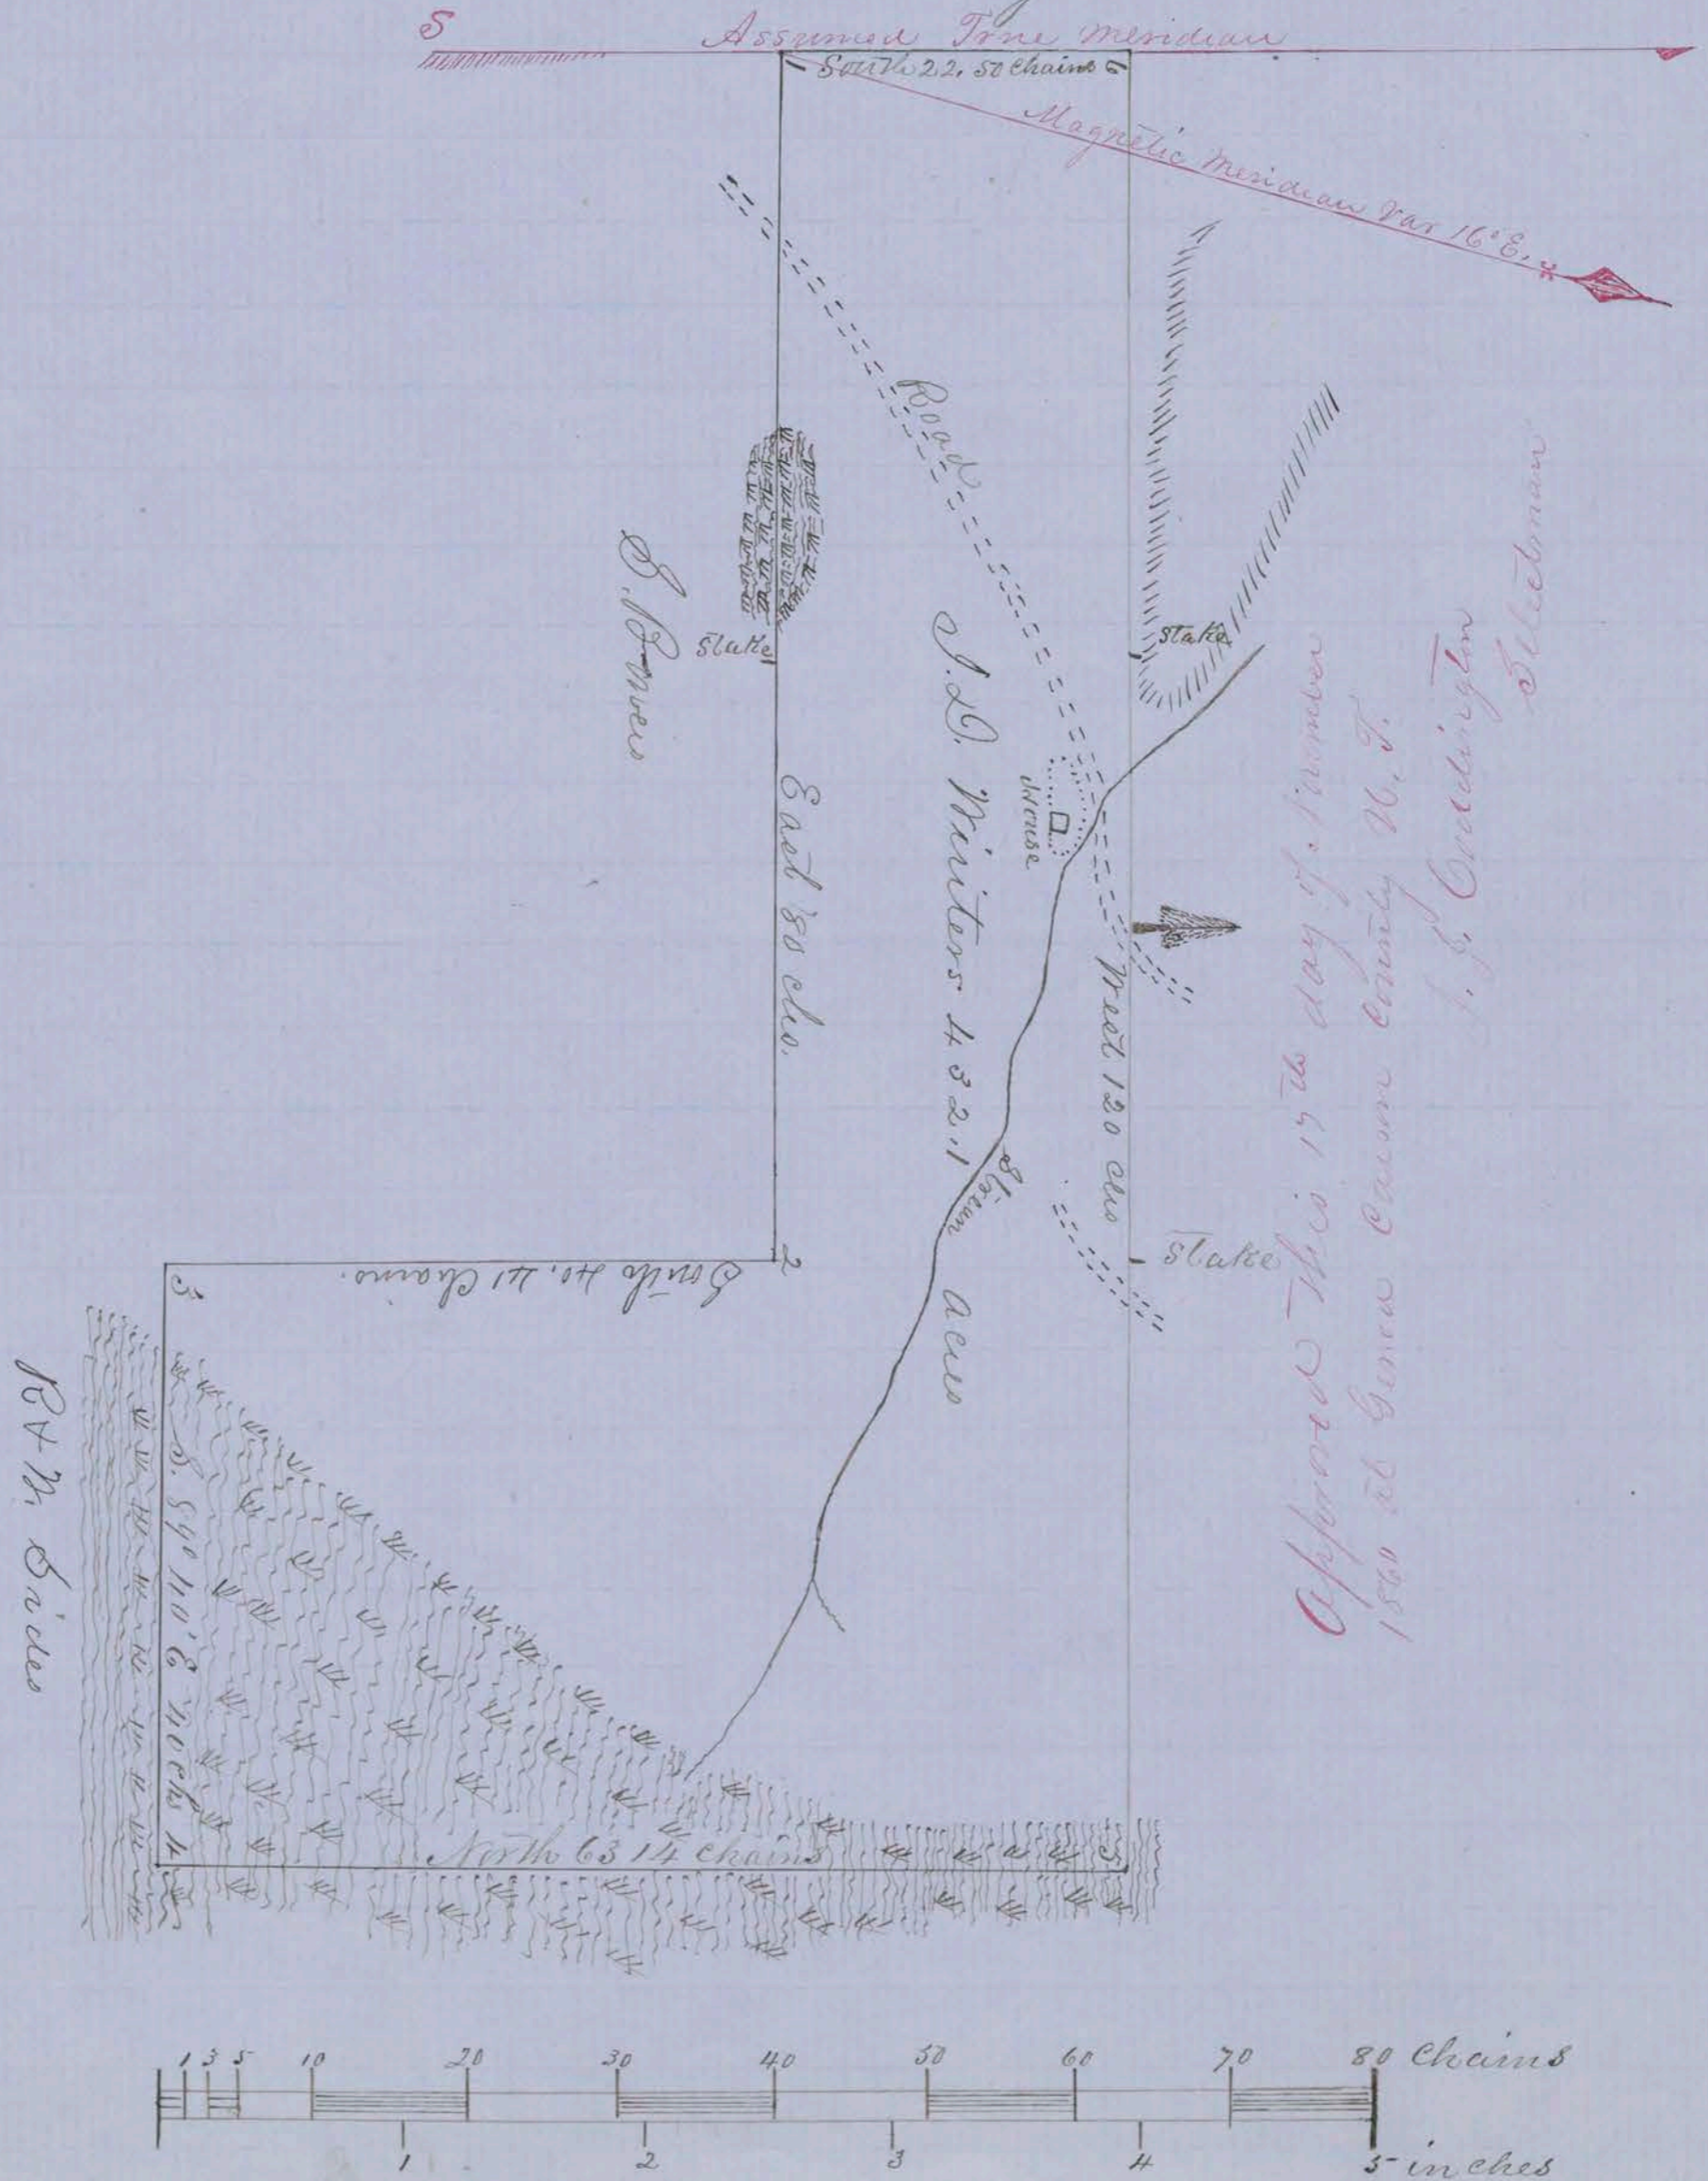 S
Assumed True Meridian
1 South 22.50 Chains 6
Magnetic Meridian Var 16° E.
Road
S. Bowers
Stake
Stake
J. D. Winters 432.1 acres
House
East 80 chs.
West 120 chs
Stream
Stake
2
South 40.41 Chains.
3
S. 89° 40' E 40 chs 4
R & W. Sides
North 63 14 Chains
5
Approved This 17th day of November
1860 at Genoa Carson County U. T.
Coddington
Selectman
1 3 5 10 20 30 40 50 60 70 80 Chains
1 2 3 4 5 inches